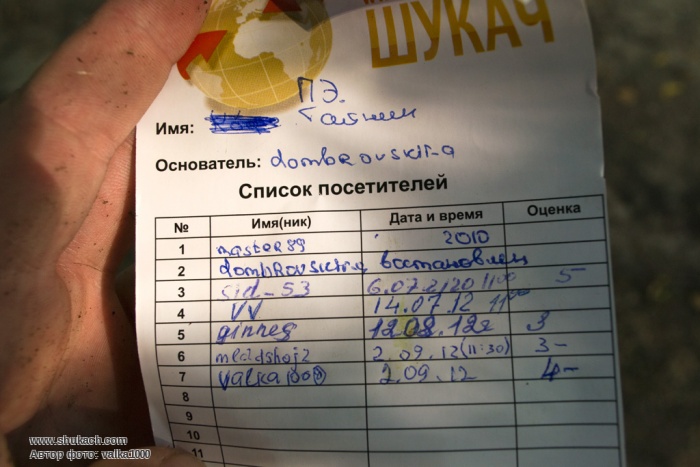 ШУКАЧ
ПЭ.
Имя: Тайник
Основатель: dombrovskit-a
Список посетителей
№ Имя(ник) Дата и время Оценка
1 master89 2010
2 восстановлен
3 sid-53 5
4 VV 14.07.12 11⁰⁰
5 ginneg 3
6 mladshoj2 2.09.12 (11:30) 3-
7 valka1000 2.09.12 4-
8
9
10
11
www.shukach.com
Автор фото: valka1000